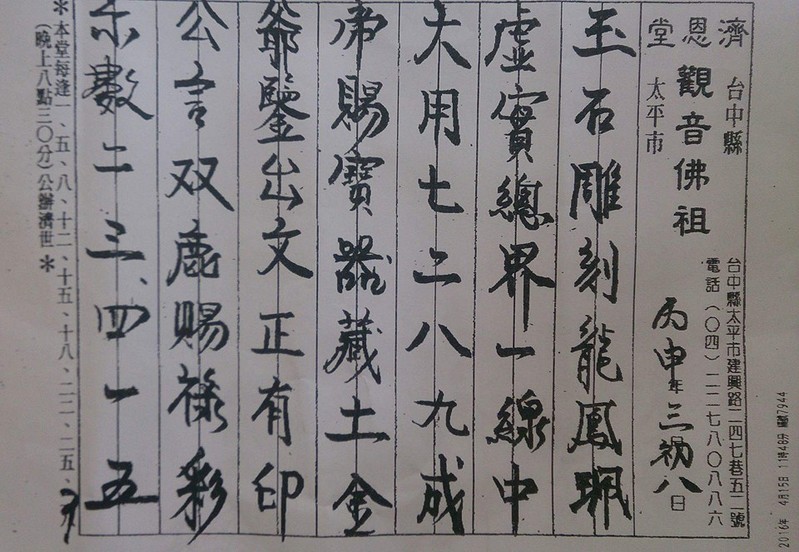 2016年 4月15日 11時48分 7944
台中縣太平市建興路二四七巷五二號
電話(〇四)二二七八〇八八六
濟恩堂
台中縣
太平市
觀音佛祖
丙申年三月初八日
玉石雕刻龍鳳珮
虛實總界一線中
大用七二八九成
帝賜寶器藏土金
爺鑒出文正有印
公言双鹿賜祿彩
示數二三、四一五
＊本堂每逢一、五、八、十二、十五、十八、二二、二五、
(晚上八點三〇分)公辦濟世＊